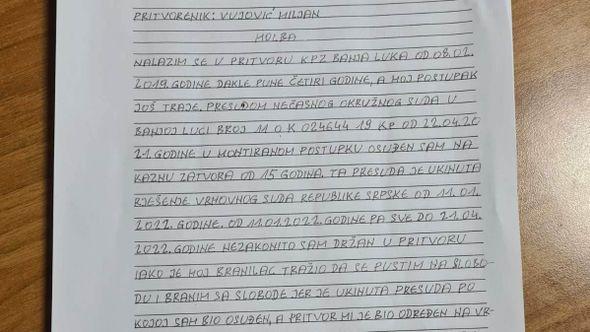 PRITVORENIK: VUJOVIĆ MILJAN
MOLBA
NALAZIM SE U PRITVORU KPZ BANJA LUKA OD 08.02.
2019. GODINE DAKLE PUNE ČETIRI GODINE, A MOJ POSTUPAK
JOŠ TRAJE. PRESUDOM NEČASNOG OKRUŽNOG SUDA U
BANJOJ LUCI BROJ 11 0 K 024644 19 KP OD 22.04.20
21. GODINE U MONTIRANOM POSTUPKU OSUĐEN SAM NA
KAZNU ZATVORA OD 15 GODINA. TA PRESUDA JE UKINUTA
RJEŠENJE VRHOVNOG SUDA REPUBLIKE SRPSKE OD 11.01.
2022. GODINE. OD 11.01.2022. GODINE PA SVE DO 21.04.
2022. GODINE NEZAKONITO SAM DRŽAN U PRITVORU
IAKO JE MOJ BRANILAC TRAŽIO DA SE PUSTIM NA SLOBO-
DU I BRANIM SA SLOBODE JER JE UKINUTA PRESUDA PO
KOJOJ SAM BIO OSUĐEN, A PRITVOR MI JE BIO ODREĐEN NA VR-